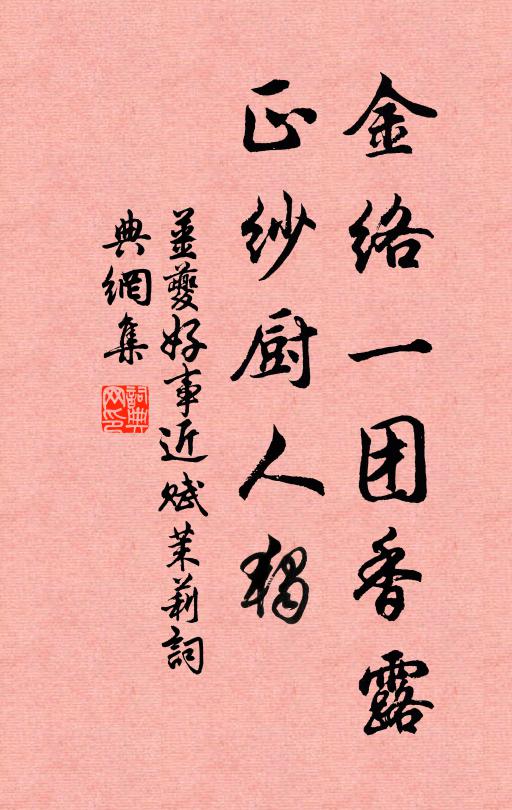 金络一团香露
正纱厨人独
姜夔好事近赋茉莉词
典網集
詞典網印